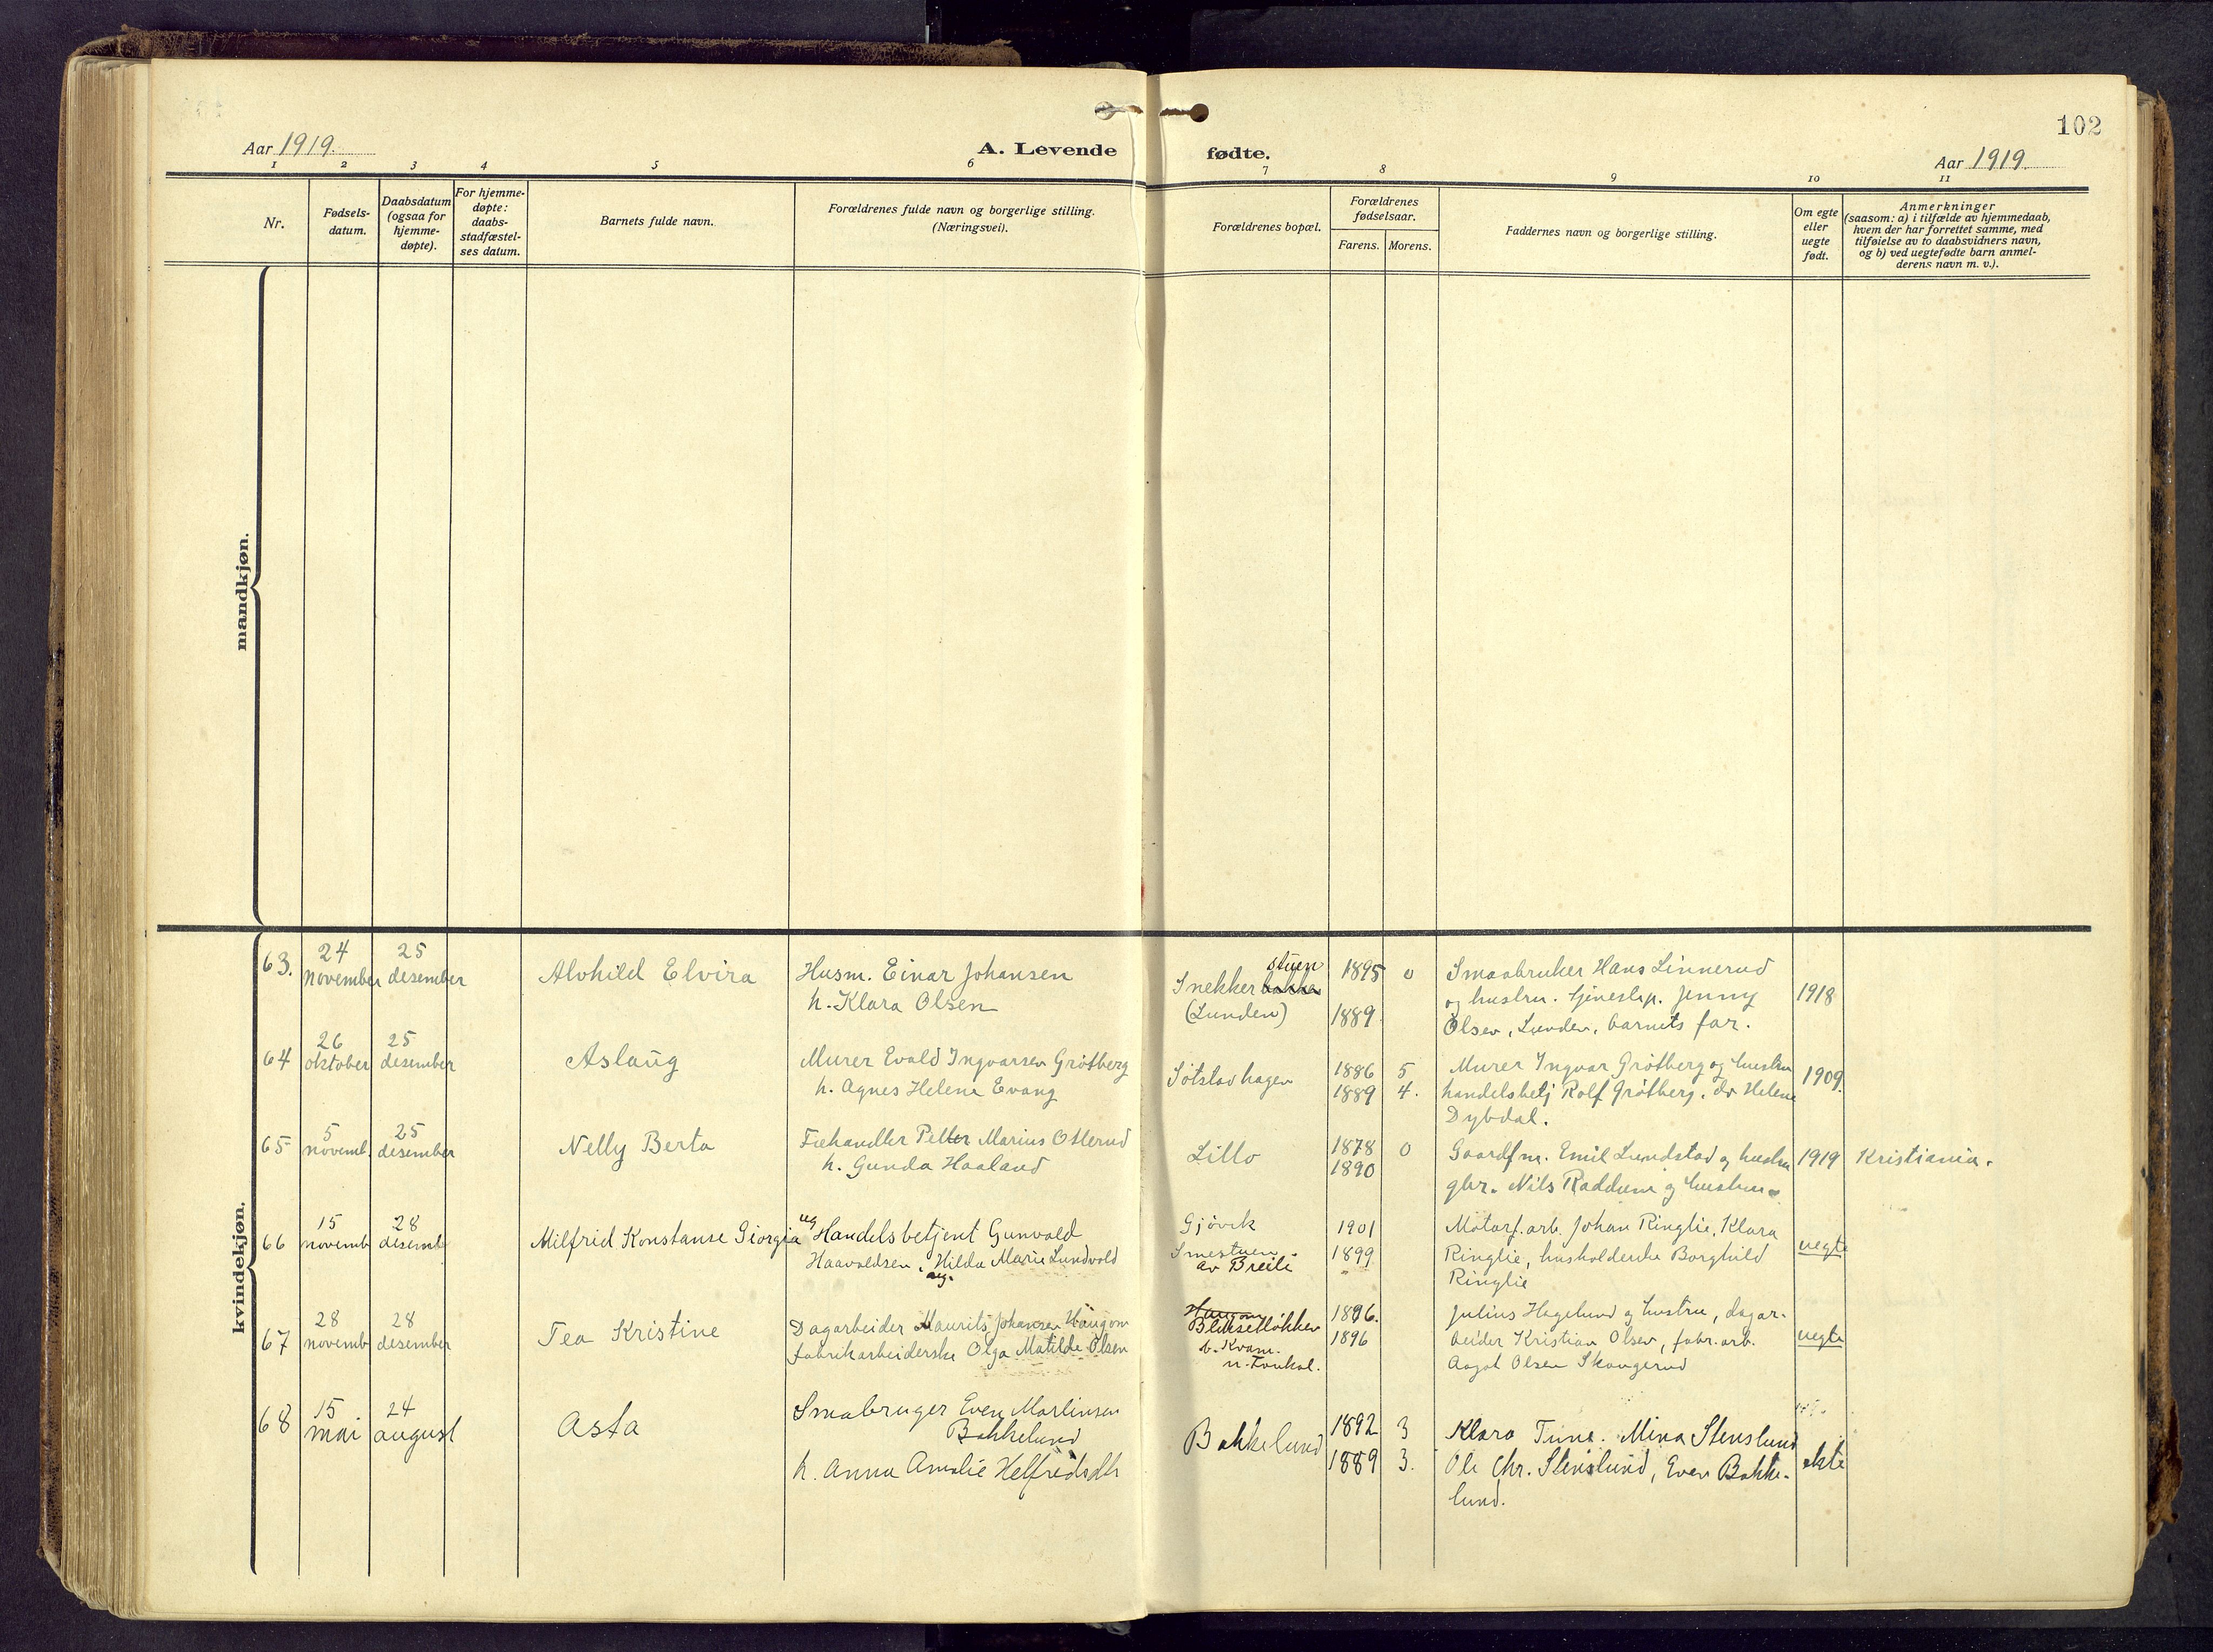 102
Aar 1919.
A. Levende
fødte.
Aar 1919
1 2 3 4 5 6 7 8 9 10 11
Nr.
Fødsels-
datum.
Daabsdatum
(ogsaa for
hjemme-
døpte).
For hjemme-
døpte:
daabs-
stadfæstel-
ses datum.
Barnets fulde navn.
Forældrenes fulde navn og borgerlige stilling.
(Næringsvei).
Forældrenes bopæl.
Forældrenes
fødselsaar.
Farens. Morens.
Faddernes navn og borgerlige stilling.
Om egte
eller
uegte
født.
Anmerkninger
(saasom: a) i tilfælde av hjemmedaab,
hvem der har forrettet samme, med
tilføielse av to daabsvidners navn,
og b) ved uegtefødte barn anmel-
derens navn m. v.).
mandkjøn.
kvindekjøn.
63.
24
november
25
desember
Alvhild Elvira
Husm. Einar Johansen
h. Klara Olsen
stuen
Snekkerbakken
(Lunden)
1895 0
1889.
Smaabruker Hans Linnerud
og hustru. tjenestep. Jenny
Olsen, Lunden, barnets far.
1918
64
26
oktober
25
desember
Aslaug
Murer Evald Ingvarsen Grötberg
h. Agnes Helene Evang
Sötstadhagen
1886 5
1889 4.
Murer Ingvar Grötberg og hustru
handelsbetj Rolf Grötberg. do Helene
Dybdal.
1909.
65
5
novemb.
25
desember
Nelly Berta
Fæhandler Petter Marius Osterud
h. Gunda Haaland
Lillo
1878 0
1890
Gaardfm. Emil Lundstad og hustru
gbr. Nils Raddum og hustru.
1919
Kristiania.
66
15
novemb
28
desemb
Milfrid Konstanse Giorgia
ug Handelsbetjent Gunvald
Haavaldsen, Hilda Marie Lundvold
Gjövik
Smestuen.
av Breili
1901
1899
Motorf.arb. Johan Ringlie, Klara
Ringlie, husholderske Borghild
Ringlie
uegte
67
28
novemb
28
desember
Tea Kristine
Dagarbeider Maurits Johansen Haugom
fabrikarbeiderske Olga Matilde Olsen
Haugom
b. Kvam.
1896.
1896
Julius Hagelund og hustru, dagar-
beider Kristian Olsen, fabr.arb.
Aagot Olsen Skougerud
uegte
68
15
mai
24
august
Asta
Smabruger Even Martinsen
Bakkelund
h. Anna Amalie Helfredsdtr
Bakkelund
1892 3
1889 3.
Klara Tune. Mina Stenslund
Ole Chr. Stenslund, Even Bakke-
lund.
ekte